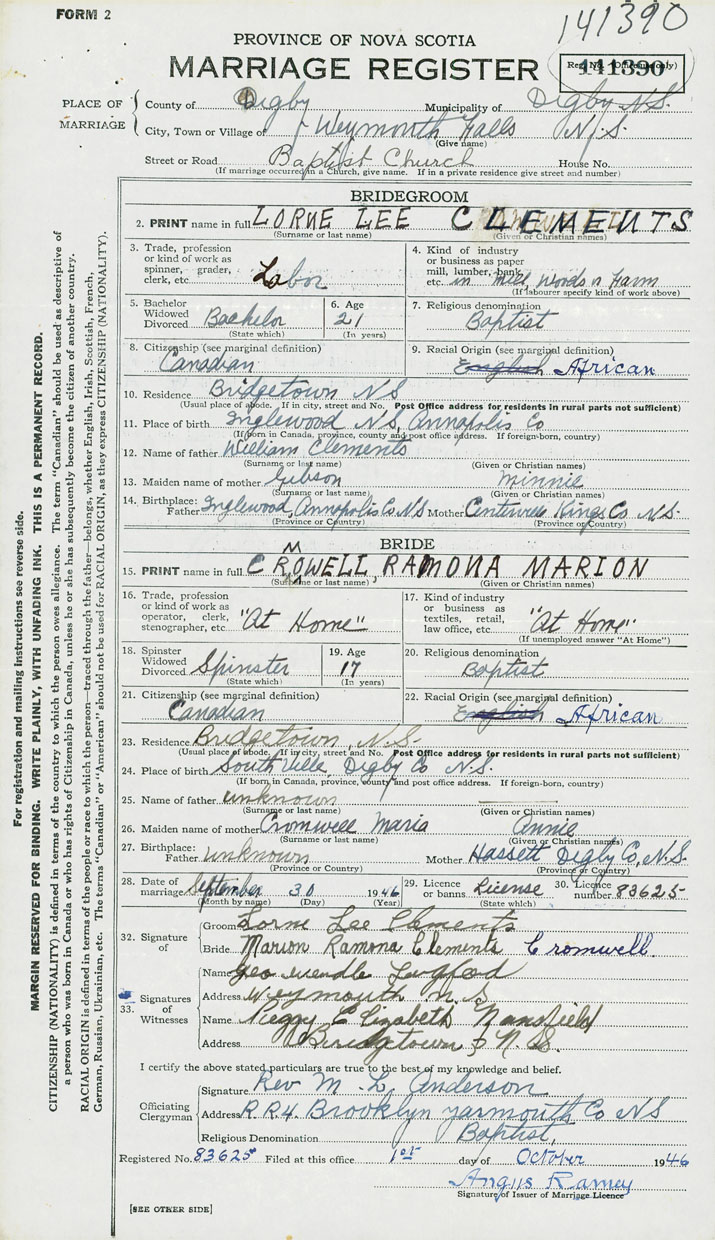 FORM 2
141390
PROVINCE OF NOVA SCOTIA
MARRIAGE REGISTER
Reg. No. (Office use only)
141390
PLACE OF MARRIAGE
County of Digby Municipality of Digby N.S.
City, Town or Village of Weymouth Falls N.S.
(Give name)
Street or Road Baptist Church House No.
(If marriage occurred in a Church, give name. If in a private residence give street and number)
BRIDEGROOM
2. PRINT name in full LORNE LEE CLEMENTS
(Surname or last name) (Given or Christian names)
3. Trade, profession or kind of work as spinner, grader, clerk, etc. Labor
4. Kind of industry or business as paper mill, lumber, bank, etc. in Mill, Woods n Farm
(If labourer specify kind of work above)
5. Bachelor Widowed Divorced Bachelor
(State which)
6. Age 21
(In years)
7. Religious denomination Baptist
8. Citizenship (see marginal definition) Canadian
9. Racial Origin (see marginal definition) English African
10. Residence Bridgetown NS
(Usual place of abode. If in city, street and No. Post Office address for residents in rural parts not sufficient)
11. Place of birth Inglewood N.S, Annapolis Co
(If born in Canada, province, county and post office address. If foreign-born, country)
12. Name of father William Clements
(Surname or last name) (Given or Christian names)
13. Maiden name of mother Gibson Minnie
(Surname or last name) (Given or Christian names)
14. Birthplace: Father Inglewood, Annapolis Co NS Mother Centerville Kings Co N.S.
(Province or Country) (Province or Country)
BRIDE
15. PRINT name in full CROMWELL, RAMONA MARION
(Surname or last name) (Given or Christian names)
16. Trade, profession or kind of work as operator, clerk, stenographer, etc. "At Home"
17. Kind of industry or business as textiles, retail, law office, etc. "At Home"
(If unemployed answer "At Home")
18. Spinster Widowed Divorced Spinster
(State which)
19. Age 17
(In years)
20. Religious denomination Baptist
21. Citizenship (see marginal definition) Canadian
22. Racial Origin (see marginal definition) English African
23. Residence Bridgetown, N.S.
(Usual place of abode. If in city, street and No. Post Office address for residents in rural parts not sufficient)
24. Place of birth South Ville, Digby Co N.S.
(If born in Canada, province, county and post office address. If foreign-born, country)
25. Name of father unknown
(Surname or last name) (Given or Christian names)
26. Maiden name of mother Cromwell Maria Annie
(Surname or last name) (Given or Christian names)
27. Birthplace: Father unknown Mother Hassett Digby Co, N.S.
(Province or Country) (Province or Country)
28. Date of marriage September 30 1946
(Month by name) (Day) (Year)
29. Licence or banns License
(State which)
30. Licence number 83625
32. Signature of
Groom Lorne Lee Clements
Bride Marion Ramona Clements Cromwell
33. Signatures of Witnesses
Name Geo Langford
Address Weymouth N.S
Name Peggy Elizabeth Mansfield
Address Bridgetown N.S.
I certify the above stated particulars are true to the best of my knowledge and belief.
Officiating Clergyman
Signature Rev M. L. Anderson
Address R.R.4. Brooklyn Yarmouth Co NS
Religious Denomination Baptist,
Registered No. 83625 Filed at this office 1st day of October 1946
Angus Ramey
Signature of Issuer of Marriage Licence
[SEE OTHER SIDE]
For registration and mailing instructions see reverse side.
MARGIN RESERVED FOR BINDING. WRITE PLAINLY, WITH UNFADING INK. THIS IS A PERMANENT RECORD.
CITIZENSHIP (NATIONALITY) is defined in terms of the country to which the person owes allegiance. The term "Canadian" should be used as descriptive of
a person who was born in Canada or who has rights of Citizenship in Canada, unless he or she has subsequently become the citizen of another country.
RACIAL ORIGIN is defined in terms of the people or race to which the person—traced through the father—belongs, whether English, Irish, Scottish, French,
German, Russian, Ukrainian, etc. The terms "Canadian" or "American" should not be used for RACIAL ORIGIN, as they express CITIZENSHIP (NATIONALITY).